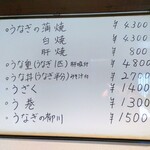 ○うなぎの蒲焼 ¥4300
白焼 ¥4300
肝焼 ¥800
○うな重(うなぎ1匹)肝吸付 ¥4800
○うな丼(うなぎ半分)吸物付 ¥2700
○うざく ¥1400
○う巻 ¥1300
○うなぎの柳川 ¥1500